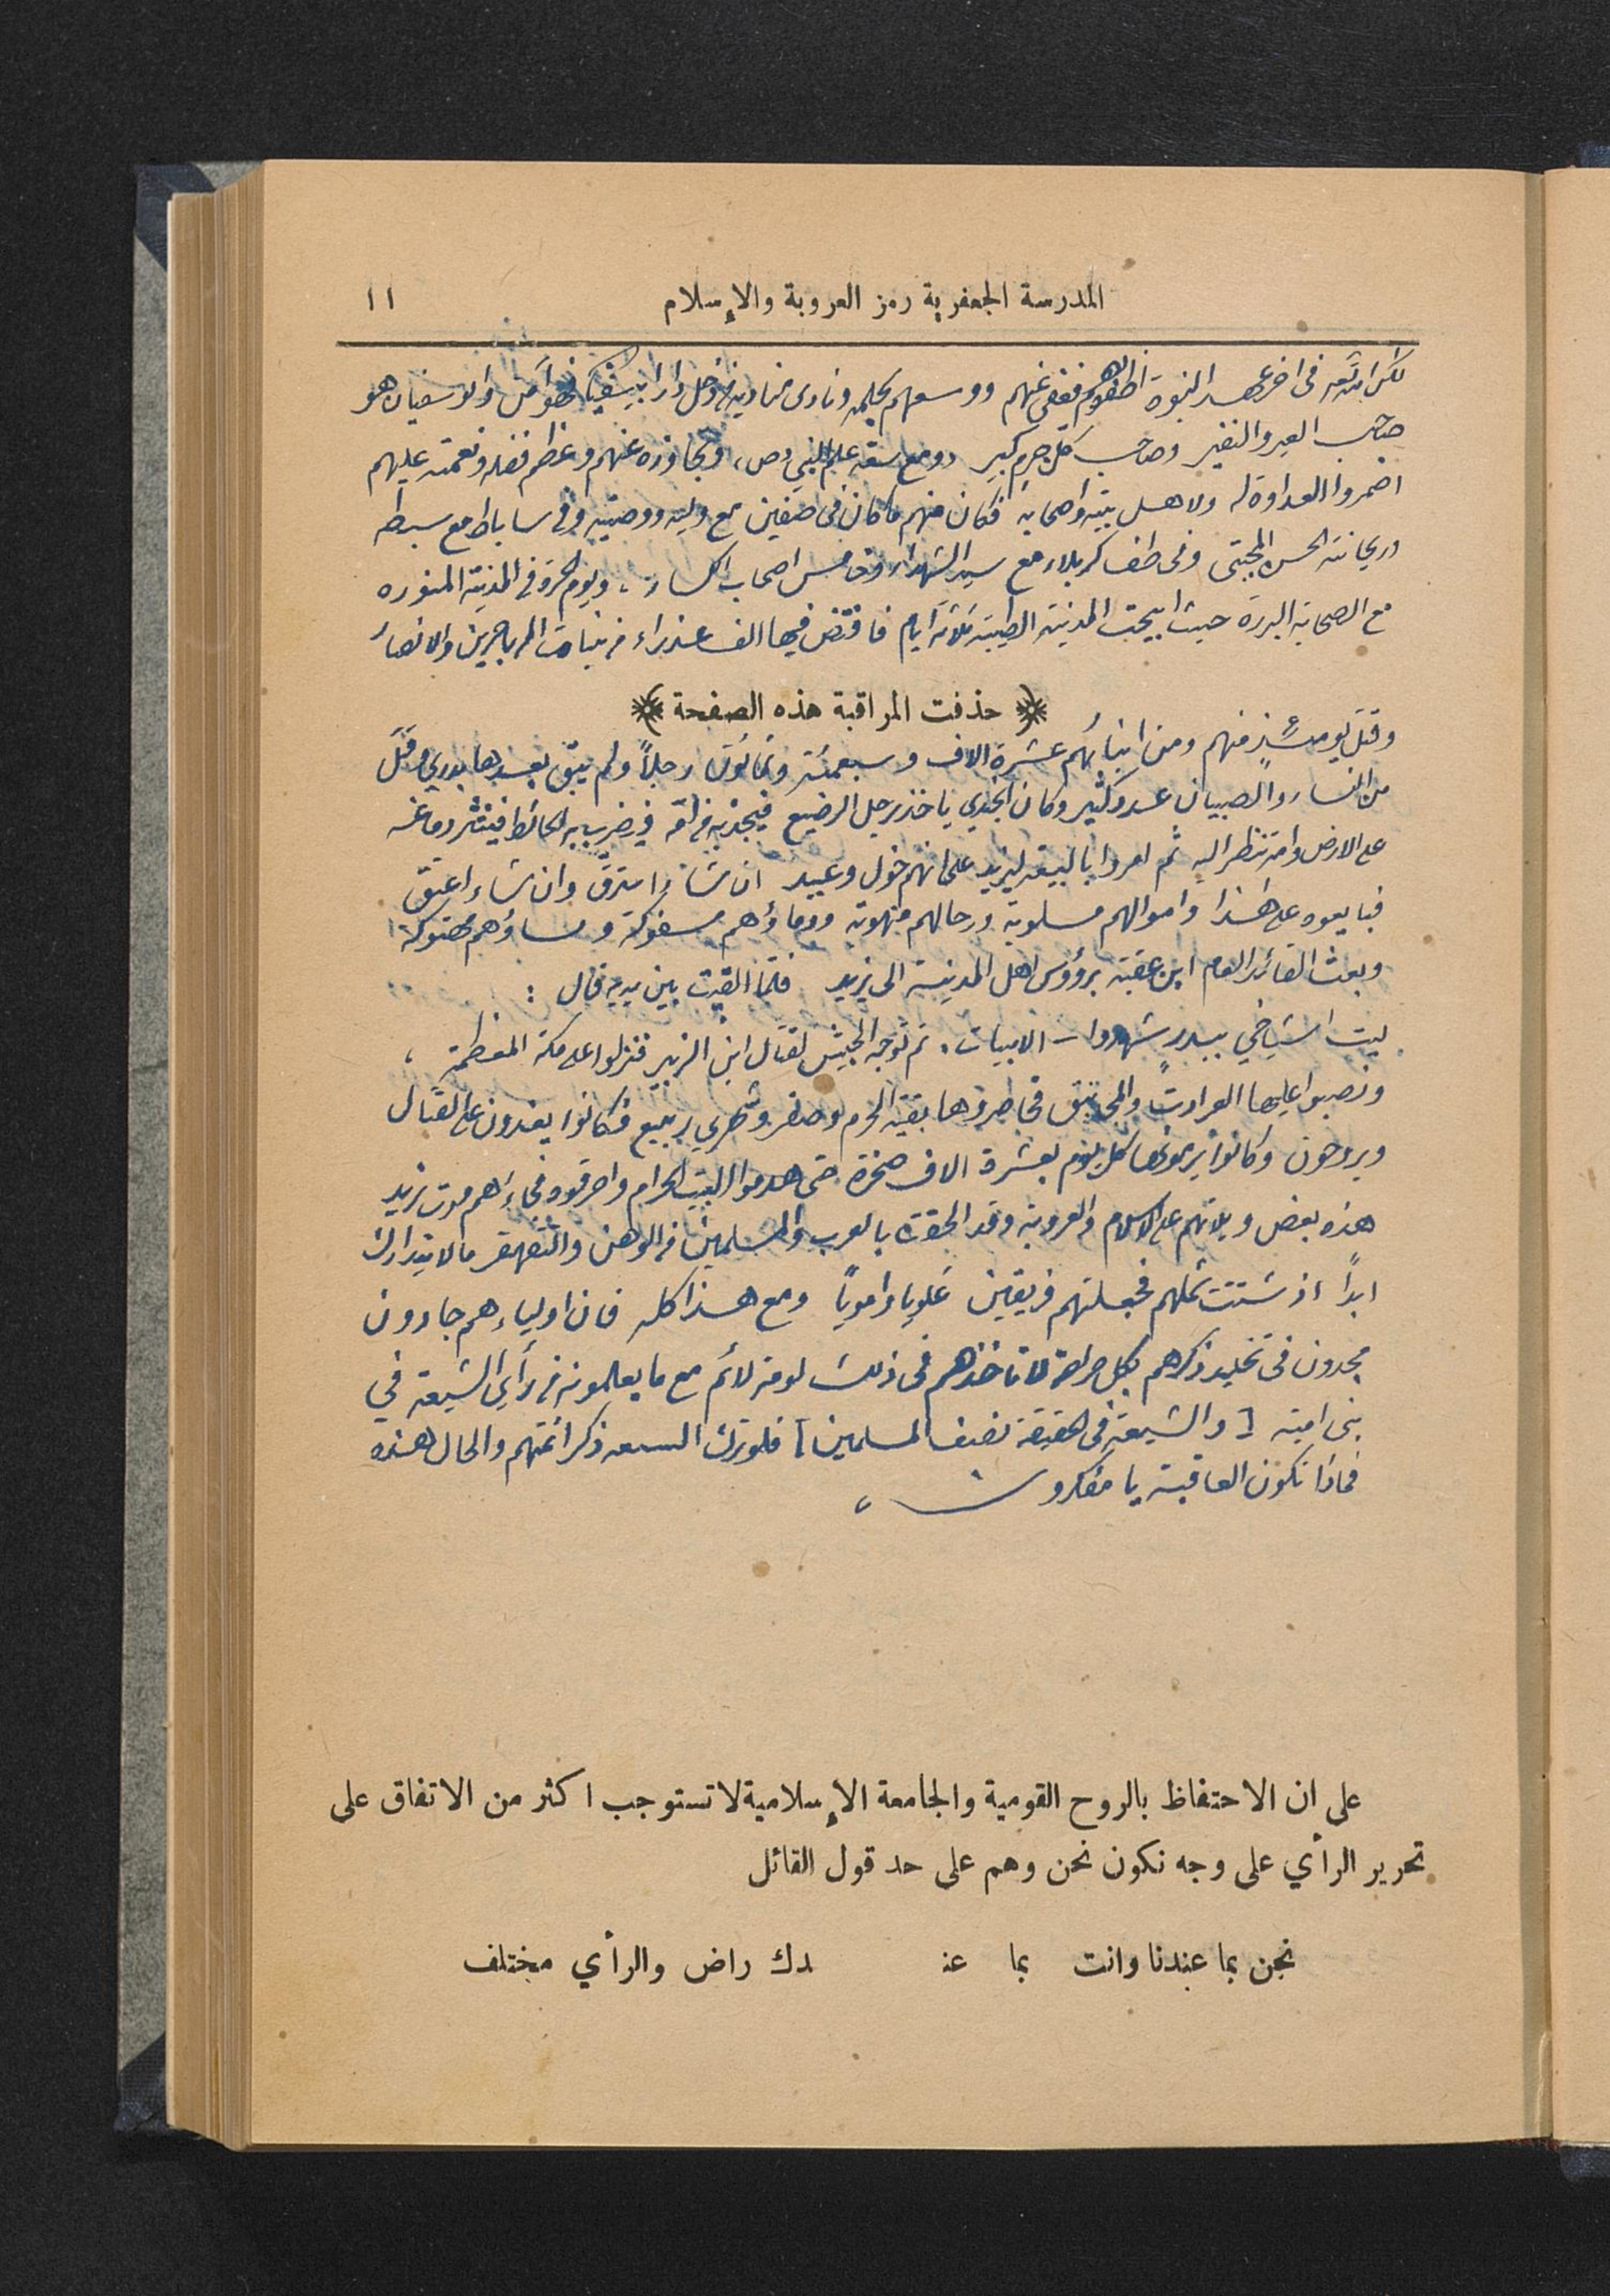 المدرسة الجعفرية رمز العروبة والإسلام ١١
لكن الله في اخر عهد النبوة اظفره بهم فعفى عنهم ووسعهم بحلمه ونادى مناديه من دخل دار ابي سفيان فهو آمن وابو سفيان هو
صاحب العير والنفير وصاحب كل جرم كبير ومع سعة حلم النبي (ص) وتجاوزه عنهم وعظم فضله ونعمته عليهم
اضمروا العداوة له ولاهل بيته واصحابه فكان منهم ما كان في صفين مع وليه ووصيه وفي ساباط مع سبطه
وريحانته الحسن المجتبى وفي طف كربلاء مع سيد الشهداء وخامس اصحاب الكساء، ويوم الحرة في المدينة المنوره
مع الصحابة البررة حيث ابيحت المدينة الطيبة ثلاثة ايام فافتض فيها الف عذراء من بنات المهاجرين والانصار
﴿ حذفت المراقبة هذه الصفحة ﴾
وقتل يومئذٍ منهم ومن ابنائهم عشرة الاف وسبعمئة وثمانون رجلاً ولم يبق بعدها بدري وقتل
من النساء والصبيان عدد كثير وكان الجندي ياخذ برجل الرضيع فيجذبه من امه فيضرب به الحائط فينتثر دماغه
على الارض وامه تنظر اليه ثم امروا بالبيعة ليزيد على انهم خول وعبيد ان شاء استرق وان شاء اعتق
فبايعوه على هذا واموالهم مسلوبة ورحالهم منهوبة ودماؤهم مسفوكة ونساؤهم مهتوكة
وبعث القائد العام ابن عقبة برؤوس اهل المدينة الى يزيد فلما القيت بين يديه قال :
ليت اشياخي ببدرٍ شهدوا - الابيات. ثم توجه الجيش لقتال ابن الزبير فنزلوا على مكة المعظمة،
ونصبوا عليها العرادات والمجانيق فحاصروها بقية المحرم وصفر وشهري ربيع فكانوا يغدون على القتال
ويروحون وكانوا يرمونها كل يوم بعشرة الاف صخرة حتى هدموا البيت الحرام واحرقوه فجاءهم موت يزيد
هذه بعض ويلاتهم على الاسلام والعروبة وقد الحقت بالعرب والمسلمين من الوهن والتقهقر ما لا يتدارك
ابداً اذ شتتت شملهم فجعلتهم فريقين علوياً وامويا ومع هذا كله فان اولياءهم جادون
مجدون في تخليد ذكرهم بكل صراحة لا تاخذهم في ذلك لومة لائم مع ما يعلمونه من رأي الشيعة في
بني امية [ والشيعة في الحقيقة نصف المسلمين ] فلو ترك الشيعه ذكر ائمتهم والحال هذه
فماذا تكون العاقبة يا مفكرون،
على ان الاحتفاظ بالروح القومية والجامعة الإسلامية لا تستوجب اكثر من الاتفاق على
تحرير الرأي على وجه نكون نحن وهم على حد قول القائل
نحن بما عندنا وانت بما عنـ دك راض والرأي مختلف